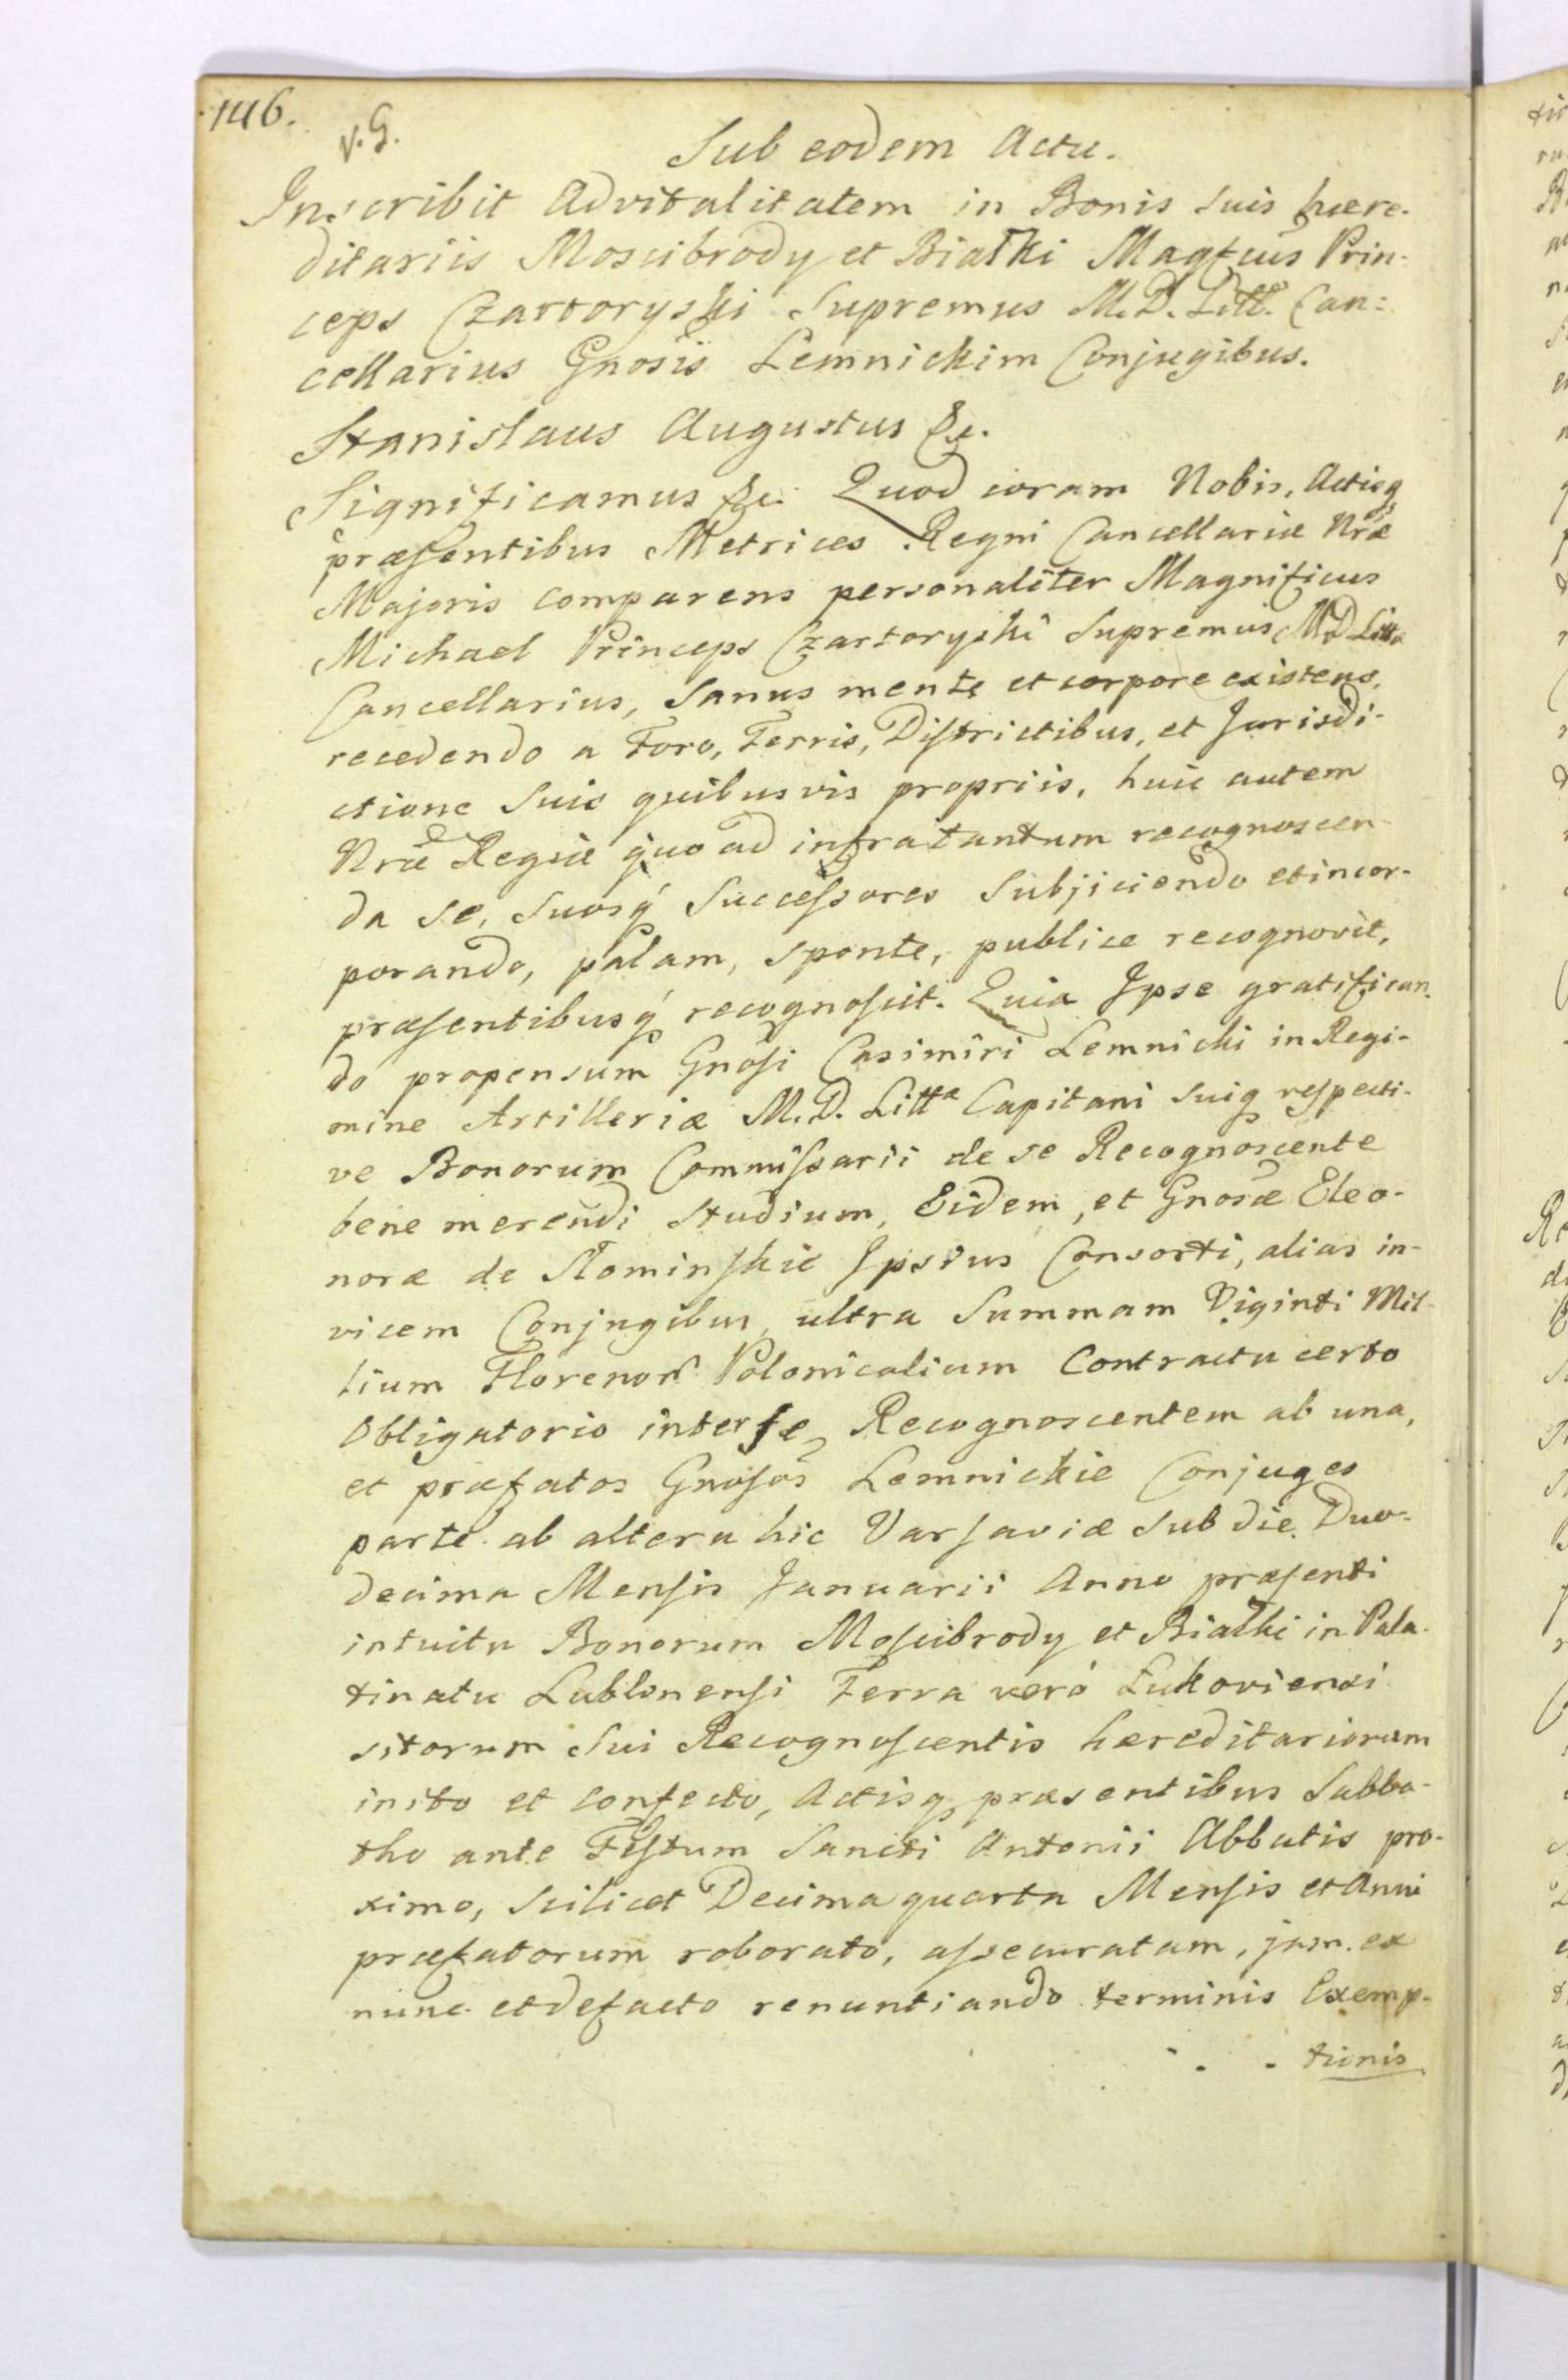 146.
V. G.
Sub eodem Actu.
Inscribit Advitalitatem in Bonis suis hære-
ditariis Moscibrody et Białki Magfcus Prin-
ceps Czartoryski Supremus M. D. Litt. Can=
cellarius Gnosis Lemnickim Conjugibus.
Stanislaus Augustus &c.
Significamus &c. Quod coram Nobis, Actisq
præsentibus Metrices Regni Cancellariæ Nræ
Majoris comparens personaliter Magnificus
Michael Princeps Czartoryski Supremus M D Litt
Cancellarius, Sanus mente et corpore existens,
recedendo a Foro, Terris, Districtibus, et Jurisdi-
ctione Suis quibusvis propriis, huic autem
Nræ Regiæ quo ad infra tantum recognoscen-
da se, Suosq Successores Subjiciendo et incor-
porando, palam, sponte, publice recognovit,
præsentibusq recognoscit. Quia Ipse gratifican-
do propensum Gnosi Casimiri Lemnicki in Regi-
mine Artilleriæ M. D. Littæ Capitani Suiq respecti-
ve Bonorum Commissarii de se Recognoscente
bene merendi Studium, Eidem, et Gnosæ Eleo-
noræ de Słominskie Ipsius Consorti, alias in-
vicem Conjugibus, ultra Summam Viginti Mil-
lium Florenor Polonicalium Contractu certo
Obligatorio inter se Recognoscentem ab una,
et præfatos Gnosos Lemnickie Conjuges
parte ab altera hic Varsaviæ Sub die Duo-
decima Mensis Januarii Anno præsenti
intuitu Bonorum Moscibrody et Białki in Pala-
tinatu Lublonensi Terra veró Łukoviensi
sitorum Sui Recognoscentis hæreditariorum
inito et confecto, Actisq præsentibus Sabba-
tho ante Festum Sancti Antonii Abbatis pro-
ximo, Scilicet Decima quarta Mensis et Anni
præfatorum roborato, assecuratam, jam ex
nunc et de facto renuntiando terminis Exemp-
tionis